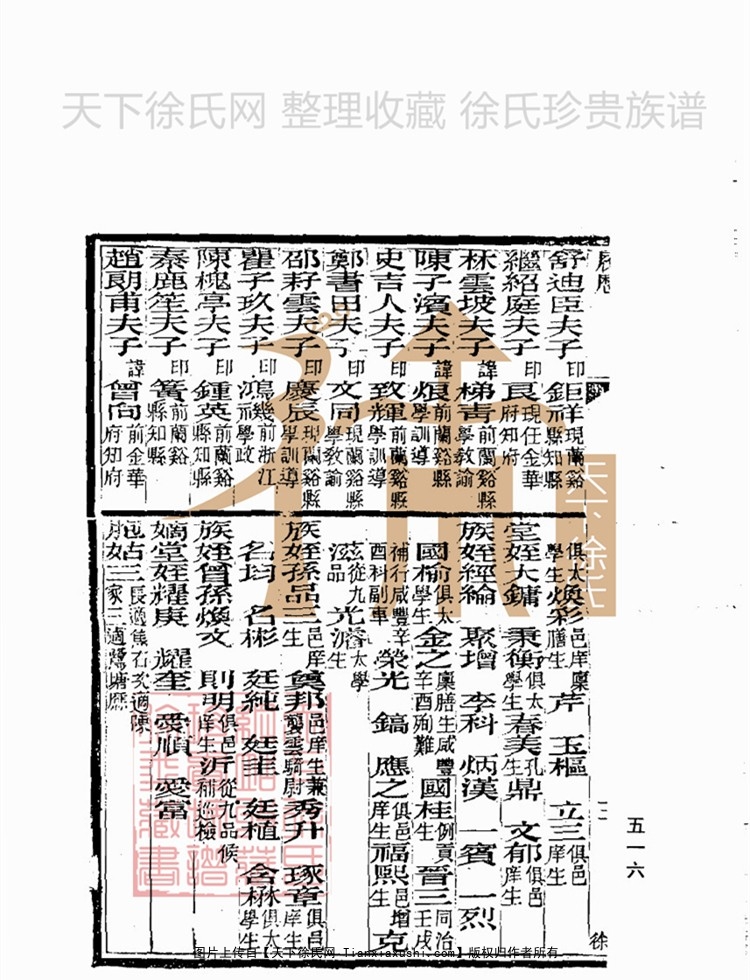 天下徐氏网 整理收藏 徐氏珍贵族谱
履歷
舒迪臣夫子 印鉅祥 現蘭谿縣知縣
繼紹庭夫子 印良 現任金華府知府
林雲坡夫子 諱梯青 前蘭谿縣學教諭
陳子濱夫子 諱烺 前蘭谿縣學訓導
史吉人夫子 印致輝 前蘭谿縣學訓導
鄭書田夫子 印文同 現蘭谿縣學教諭
邵莳雲夫子 印慶辰 現蘭谿縣學訓導
瞿子玖夫子 印鴻禨 前浙江學政
陳槐亭夫子 印鍾英 前蘭谿縣知縣
秦鹿笙夫子 印簧 前蘭谿縣知縣
趙朗甫夫子 諱曾向 前金華府知府
俱太學生 煥彩 邑庠廩膳生 芹 玉樞 立三 俱邑庠生
堂姪大鏞 秉衡 俱太學生 春美 孔生 鼎 文郁 俱邑庠生
族姪經綸 聚增 李科 炳漢 一賓 一烈
國榆 俱太學生 金之 廩膳生咸豐辛酉殉難 國桂 例貢生 晋三 壬戌
補行咸豐辛酉科副車 榮光 鎬 應之 俱邑庠生 福熙 邑增生 克
滋 從九品 光 太學生
族姪孫品三 邑庠生 賓邦 邑庠生兼襲雲騎尉 秀升 琢章 俱邑庠生
名均 名彬 廷純 廷圭 廷植 含 林 俱太學生
族姪曾孫煥文 則明 俱邑庠生 沂 從九品候補巡檢
嫡堂姪耀庚 耀奎 愛順 愛富
胞姑三 長適 石 次適陳家 三適鷺塘
三
五一六
徐
天下徐氏
图片上传自【天下徐氏网 Tianxiaxushi.com】版权归作者所有